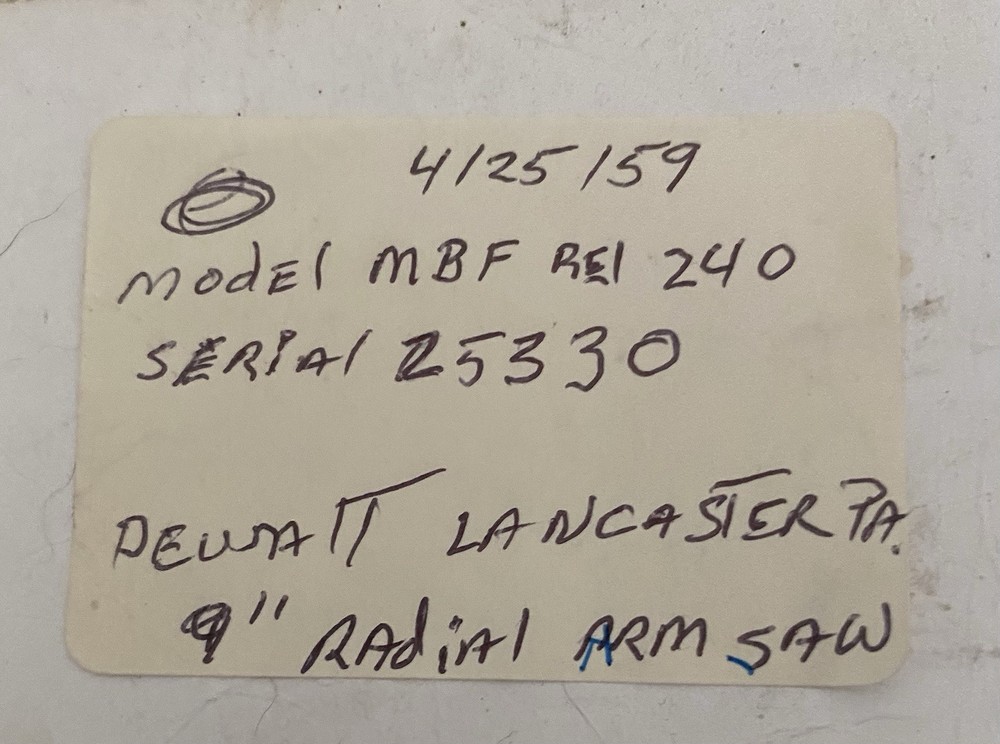 4/25/59
MODEl MBF REl 240
SERiAl 25330
DEWAlT LANCASTER PA.
9" RAdiAl ARM SAW